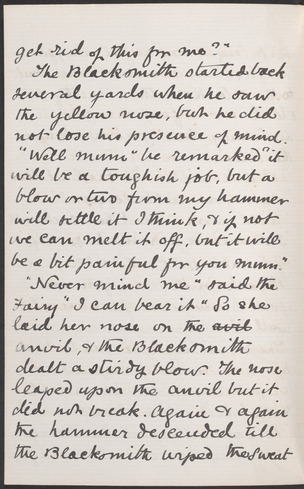 get rid of this for me?"
The Blacksmith started back
several yards when he saw
the yellow nose, but he did
not lose his presence of mind.
"Well mum" he remarked "it
will be a toughish job, but a
blow or two from my hammer
will settle it I think, & if not
we can melt it off, but it will
be a bit painful for you mum."
"Never mind me" said the
Fairy "I can bear it" So she
laid her nose on the avil
anvil, & the Blacksmith
dealt a sturdy blow. The nose
leaped upon the anvil but it
did not break. Again & again
the hammer descended till
the Blacksmith wiped the sweat